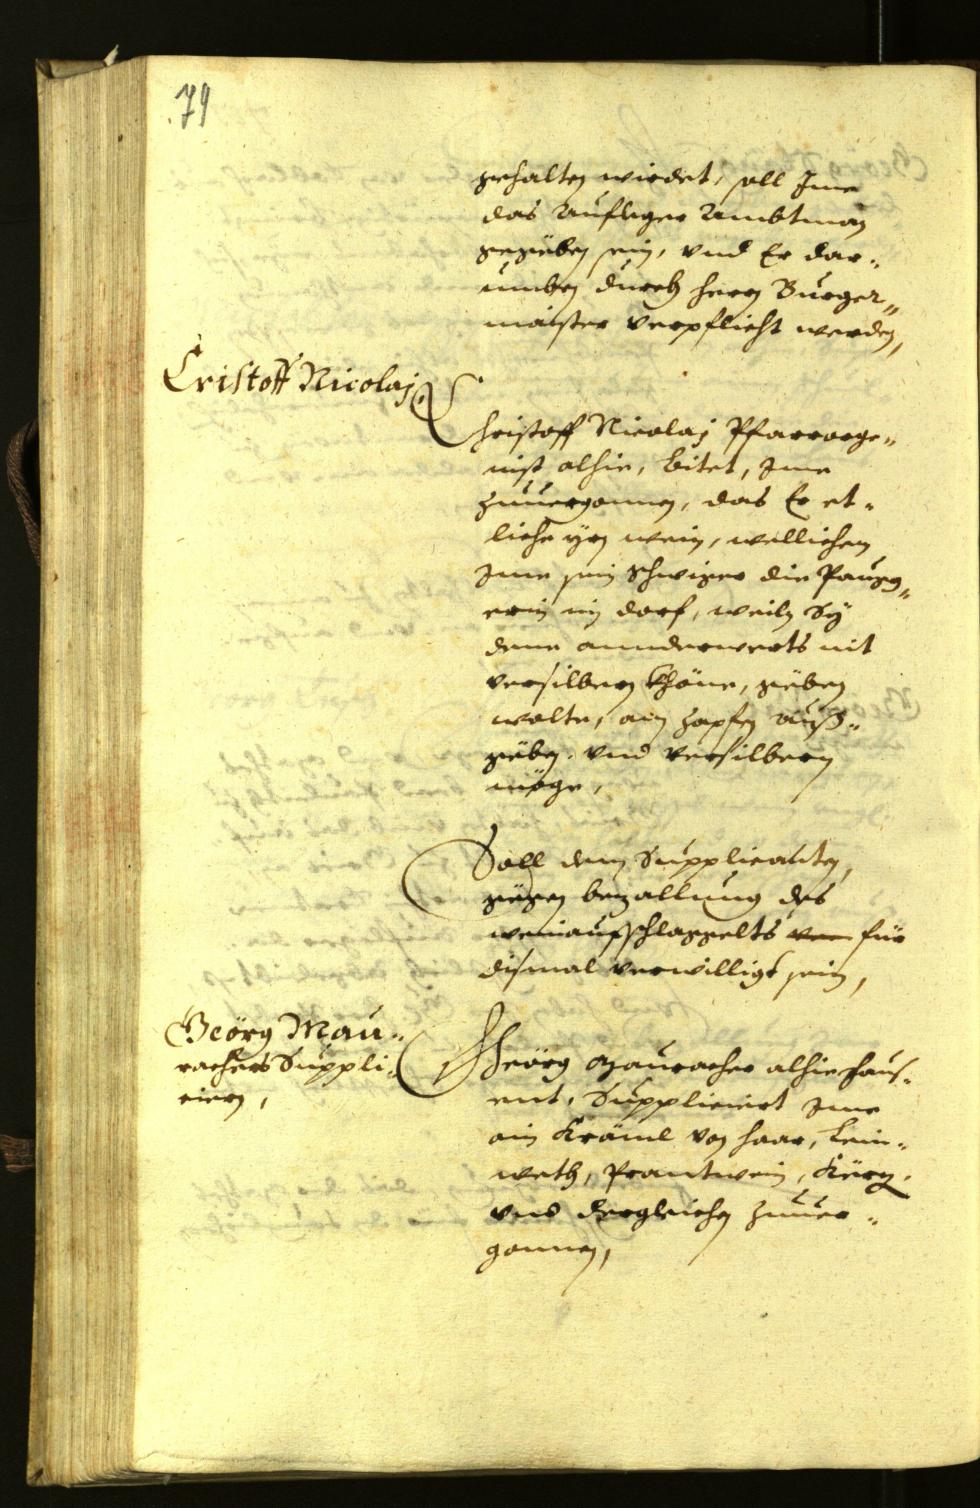 79
gehalten wirdet, soll Ime
das Aufleger Ambtman
gegeben sein, vnd Er dar-
umben durch herrn Burger-
maister verpflicht werden,
Cristoff Nicolaj
Christoff Nicolaj Pfarrorge-
nist alhie, bitet, Ime
zuuergonnen, das Er et-
liche yrn wein, wellichen
Ime sein schwiger die
erin im dorf, weiln Sÿ
denn annderwerts nit
versilbern khöne, geben
wolte, ain zapfen auß-
geben, vnd versilbern
möge,
Soll dem Supplicanten,
gegen bezallung des
weinaufschlaggelts für
dismal verwilligt sein,
Geörg Mau-
rachers Suppli-
ciern,
Geörg Mauracher alhie haus-
ent, Suppliciert Ime
ain Kräml von haar, Lein-
wath, Prantwein,
vnd dergleichen zuuer-
gonnen,